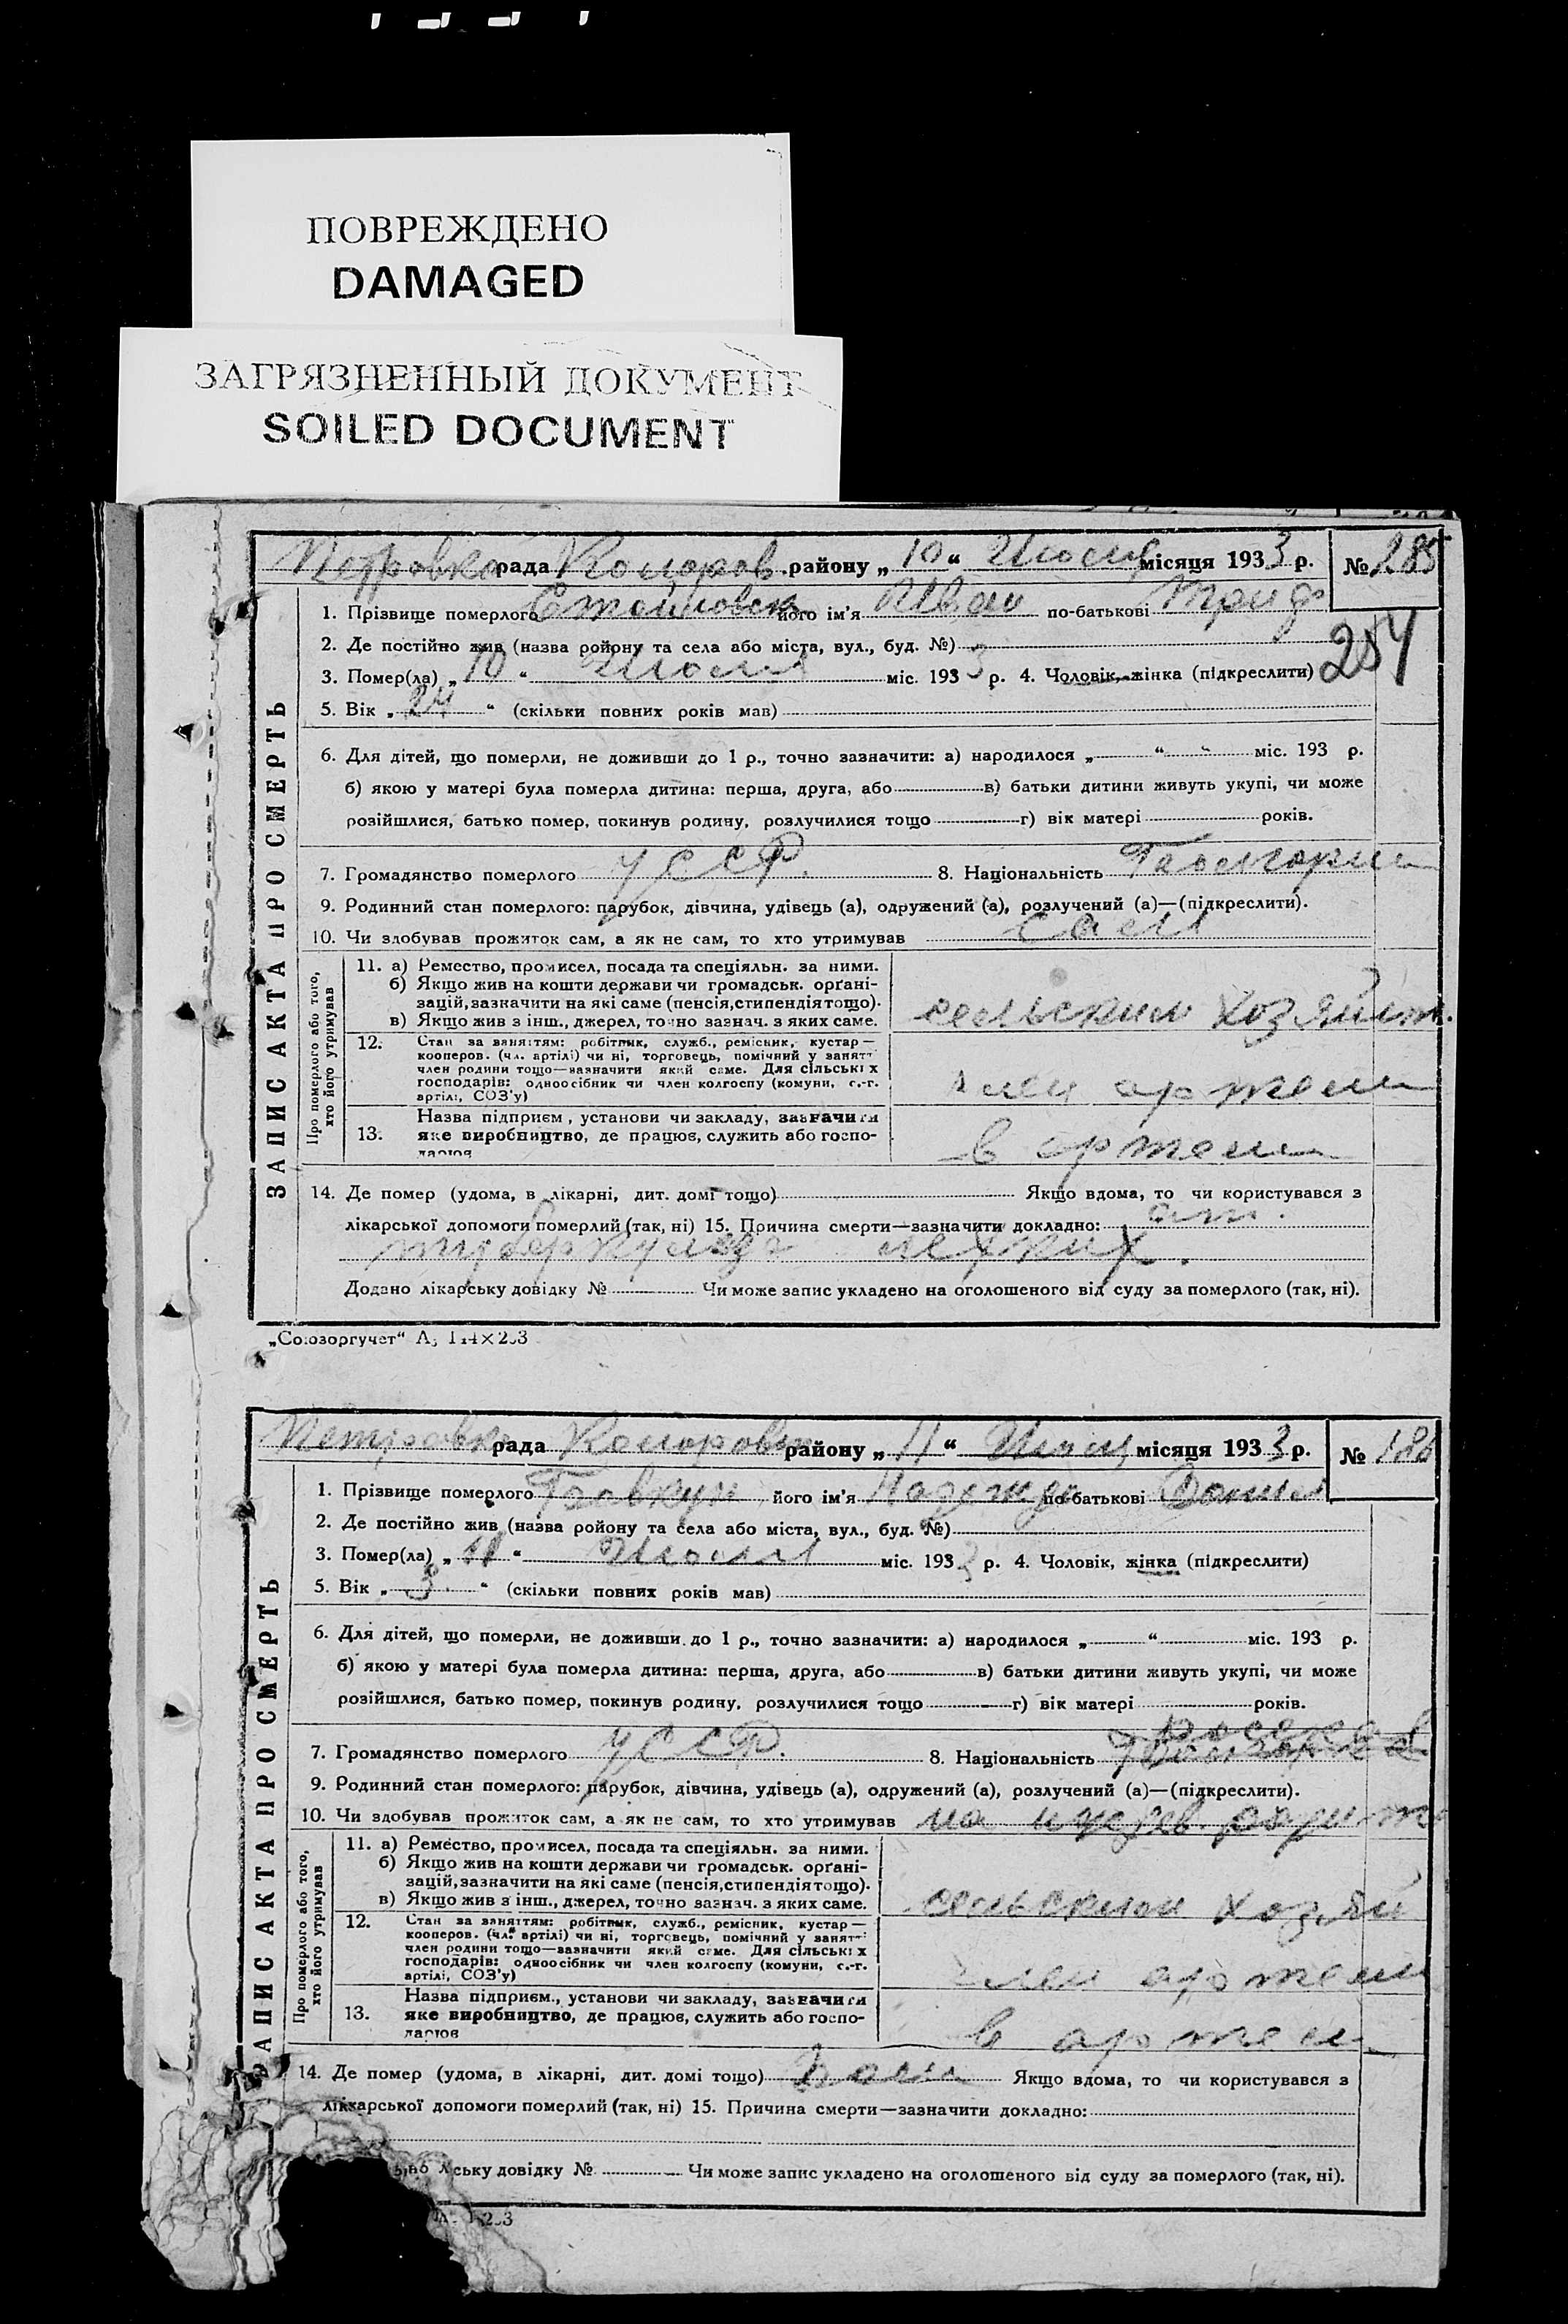 ПОВРЕЖДЕНО
DAMAGED
ЗАГРЯЗНЕННЫЙ ДОКУМЕНТ
SOILED DOCUMENT
рада району „ 10 “ місяця 1933 р. № 285
254
ЗАПИС АКТА ПРО СМЕРТЬ
1. Прізвище померлого його ім'я Иван по-батькові
2. Де постійно жив (назва ройону та села або міста, вул., буд. №)
3. Помер(ла) „ 10 “ Июля міс. 1933 р. 4. Чоловік, жінка (підкреслити)
5. Вік „ 24 “ (скільки повних років мав)
6. Для дітей, що померли, не доживши до 1 р., точно зазначити: а) народилося „ “ міс. 193 р.
б) якою у матері була померла дитина: перша, друга, або в) батьки дитини живуть укупі, чи може
розійшлися, батько помер, покинув родину, розлучилися тощо г) вік матері років.
7. Громадянство померлого УССР. 8. Національність
9. Родинний стан померлого: парубок, дівчина, удівець (а), одружений (а), розлучений (а)—(підкреслити).
10. Чи здобував прожиток сам, а як не сам, то хто утримував сам
Про померлого або того, хто його утримував
11. а) Ремество, промисел, посада та спеціяльн. за ними.
б) Якщо жив на кошти держави чи громадськ. орґані-
зацій, зазначити на які саме (пенсія, стипендія тощо).
в) Якщо жив з інш., джерел, точно зазнач. з яких саме.
сельским
12. Стан за заняттям: робітник, служб., ремісник, кустар—
кооперов. (чл. артілі) чи ні, торговець, помічний у занятт
член родини тощо—зазначити який саме. Для сільських
господарів: одноосібник чи член колгоспу (комуни, с.-г.
артілі, СОЗ'у)
член артели
13. Назва підприєм., установи чи закладу, зазначити
яке виробництво, де працює, служить або госпо-
дарює
в артели
14. Де помер (удома, в лікарні, дит. домі тощо) Якщо вдома, то чи користувався з
лікарської допомоги померлий (так, ні) 15. Причина смерти—зазначити докладно:
туберкулез легких.
Додано лікарську довідку № Чи може запис укладено на оголошеного від суду за померлого (так, ні).
„Союзоргучет“
рада району „ 11 “ місяця 1933 р. № 186
ЗАПИС АКТА ПРО СМЕРТЬ
1. Прізвище померлого його ім'я Надежда по-батькові
2. Де постійно жив (назва ройону та села або міста, вул., буд. №)
3. Помер(ла) „ 11 “ Июля міс. 1933 р. 4. Чоловік, жінка (підкреслити)
5. Вік „ 3 “ (скільки повних років мав)
6. Для дітей, що померли, не доживши до 1 р., точно зазначити: а) народилося „ “ міс. 193 р.
б) якою у матері була померла дитина: перша, друга, або в) батьки дитини живуть укупі, чи може
розійшлися, батько помер, покинув родину, розлучилися тощо г) вік матері років.
7. Громадянство померлого УССР. 8. Національність
9. Родинний стан померлого: парубок, дівчина, удівець (а), одружений (а), розлучений (а)—(підкреслити).
10. Чи здобував прожиток сам, а як не сам, то хто утримував на
Про померлого або того, хто його утримував
11. а) Ремество, промисел, посада та спеціяльн. за ними.
б) Якщо жив на кошти держави чи громадськ. орґані-
зацій, зазначити на які саме (пенсія, стипендія тощо).
в) Якщо жив з інш., джерел, точно зазнач. з яких саме.
сельским хозяй
12. Стан за заняттям: робітник, служб., ремісник, кустар—
кооперов. (чл. артілі) чи ні, торговець, помічний у занятт
член родини тощо—зазначити який саме. Для сільських
господарів: одноосібник чи член колгоспу (комуни, с.-г.
артілі, СОЗ'у)
член артели
13. Назва підприєм., установи чи закладу, зазначити
яке виробництво, де працює, служить або госпо-
дарює
в артел
14. Де помер (удома, в лікарні, дит. домі тощо) Дома Якщо вдома, то чи користувався з
лікарської допомоги померлий (так, ні) 15. Причина смерти—зазначити докладно:
ську довідку № Чи може запис укладено на оголошеного від суду за померлого (так, ні).